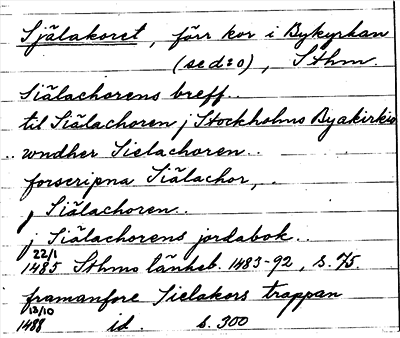 Själakoret, förr kor i Bykyrkan
(se d:o), Sthm.
Siälachorens breff..
til Siälachoren j Stockholms Byakirkio
.. wndher Sielachoren..
forscripna Siälachor, ..
j Siälachoren..
j Siälachorens jordabok..
22/1
1485 Sthms tänkeb. 1483-92, s. 75.
framanfore Sielakors trappan
13/10
1488 id. s. 300